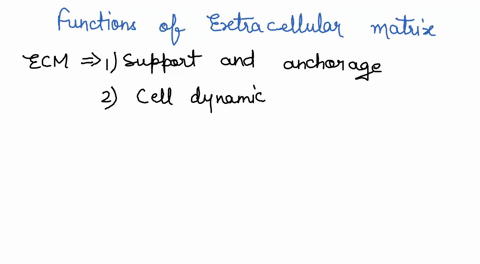 Functions of Extracellular matrix
ECM ⇒ 1) Support and anchorage
2) Cell dynamic